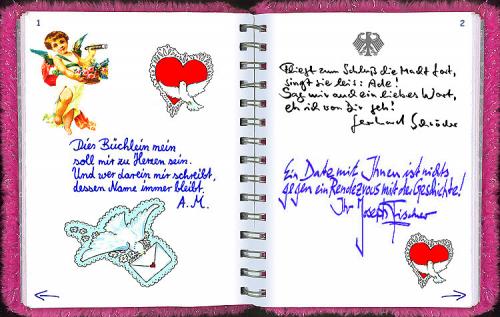 1
Dies Büchlein mein
soll mir zu Herzen sein.
Und wer darein mir schreibt,
dessen Name immer bleibt.
A.M.
2
Fliegt zum Schluß die Macht fort,
singt sie leis: Ade!
Sag mir auch ein liebes Wort,
eh ich von Dir geh!
Gerhard Schröder
Ein Date mit Ihnen ist nichts
gegen ein Rendezvous mit der Geschichte!
Ihr Joseph Fischer